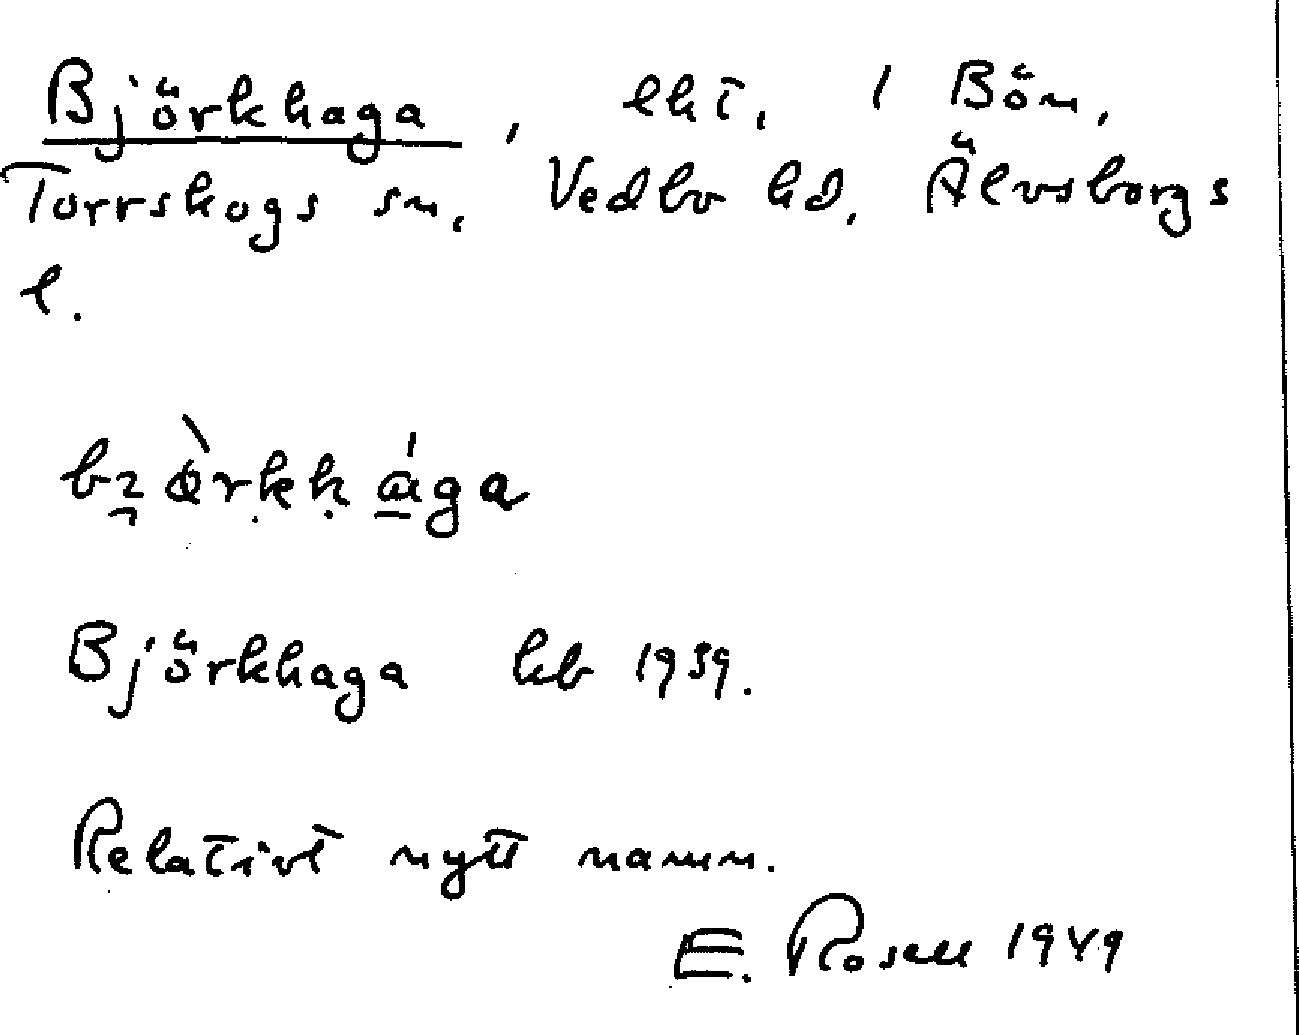 Björkhaga, lht, i Bön,
Torrskogs sn, Vedbo hd, Älvsborgs
l.
Björkhaga kb 1939.
Relativt nytt namn.
E. Rosell 1949